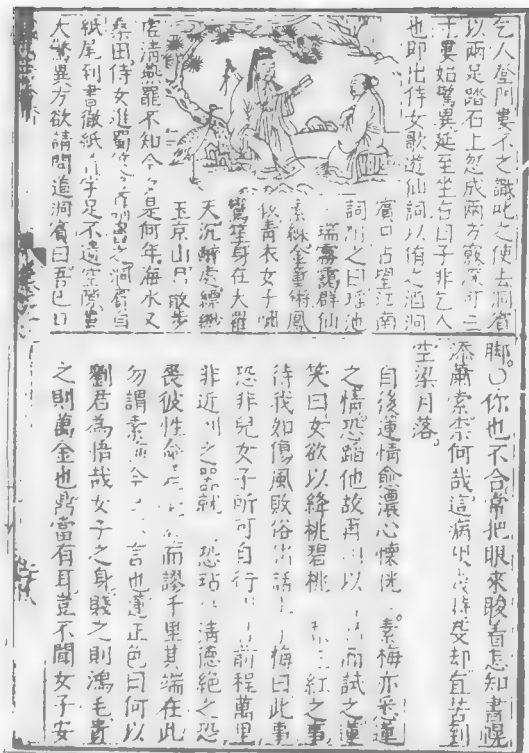 乞人登門婁不之識叱之使去洞賓
以兩足踏石上忽成兩方竅深可三
寸婁始驚異延至坐台曰子非乞人
也即出侍女歌遊仙詞以侑之酒洞
賓口占望江南
詞酬之曰瑤池
瑞霧靄群仙
素練金童鏘鳳
板青衣女子嘯
鸞笙身在大羅
天沉醉處縹緲
玉京山唱散步
虗清興罷不知今夕是何年海水又
桑田侍女進蜀箋洞賓自
紙尾到書徹紙字足不遺空隙婁
大驚異方欲請問道洞賓曰吾已口
脚。○你也不合常把眼來睃看怎知書幌
添蕭索柰何哉這病却宜苦到
空梁月落。
自後蓮情愈濃心懷恍素梅亦悉蓮
之情恐蹈他故再以而試之蓮
笑曰女欲以絳桃碧桃三紅之事
待我如傷風敗俗出話梅曰此事
恐非兒女子所可自行前程萬里
非近之器就恐玷清德絕之恐
喪彼性命而謬千里其端在此
勿謂素今言也蓮正色曰何以
劉君為悟哉女子之身賤之則鴻毛貴
之則萬金也鼎當有耳豈不聞女子安